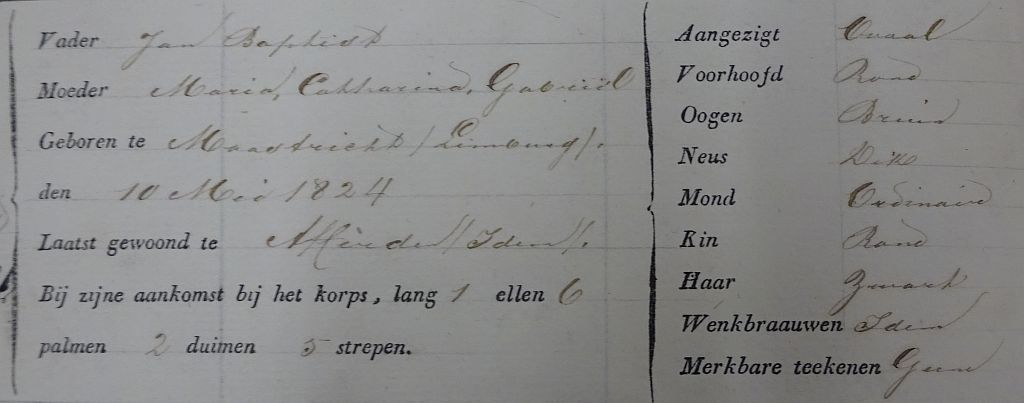 Vader Jan Baptist
Moeder Maria, Catharina, Gabriël
Geboren te Maastricht /Limburg/.
den 10 Mei 1824
Laatst gewoond te Afferden /Idem/.
Bij zijne aankomst bij het korps, lang 1 ellen 6
palmen 2 duimen 5 strepen.
Aangezigt Ovaal
Voorhoofd Rond
Oogen Bruin
Neus Dik
Mond Ordinair
Kin Rond
Haar Zwart
Wenkbraauwen Idem
Merkbare teekenen Geene